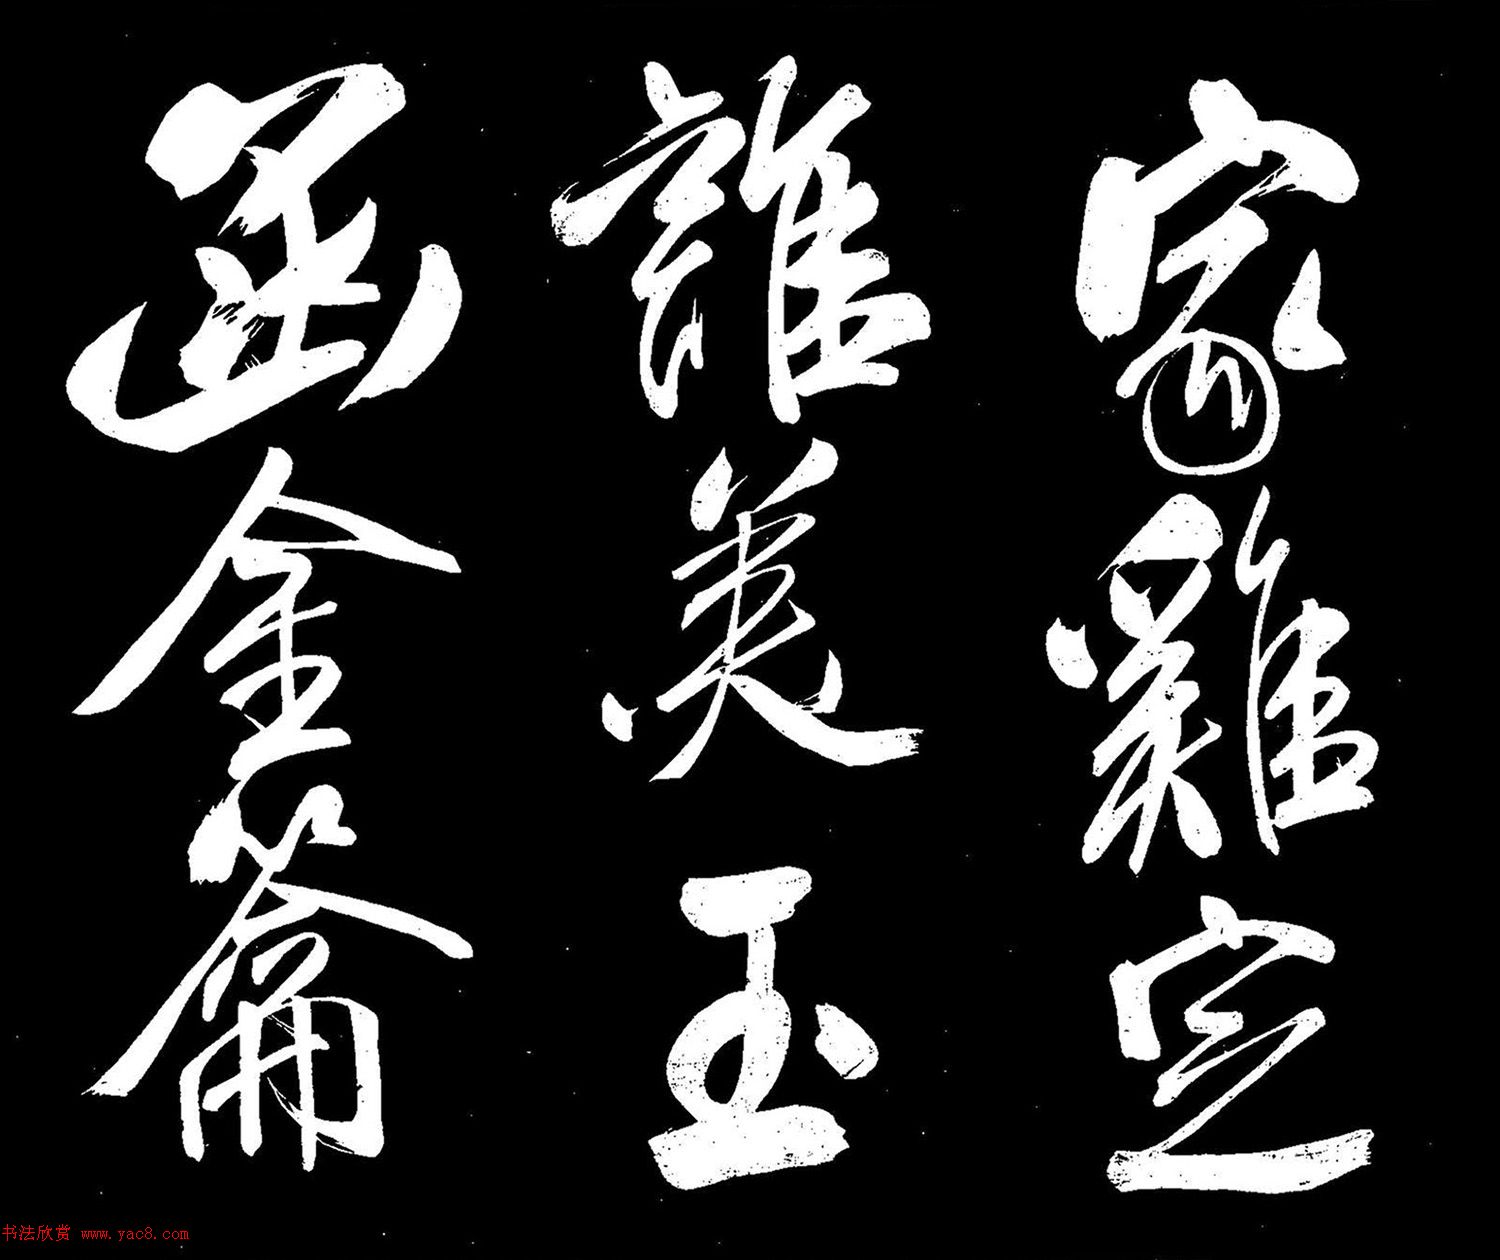 家雞定
誰美玉
函金籥
书法欣赏 www.yac8.com